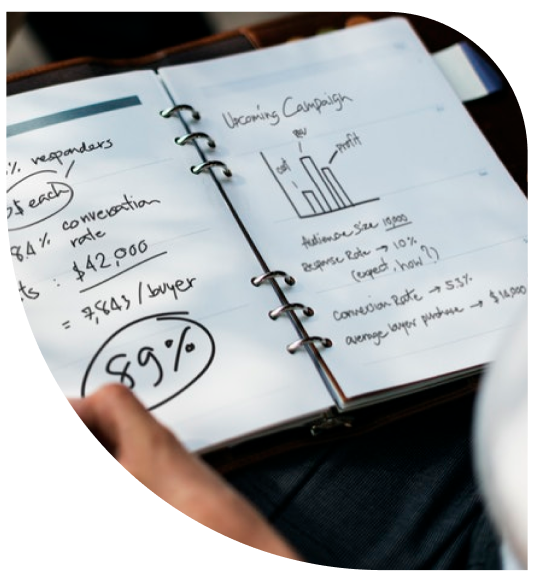 % responders
$ each
84% conversation
rate
ts : $42,000
= 7,843 / buyer
89%
Upcoming Campaign
cost
rev
profit
Audience size 10,000
Response Rate → 10%
(expect, how?)
Conversion Rate → 53%
average buyer purchase → $